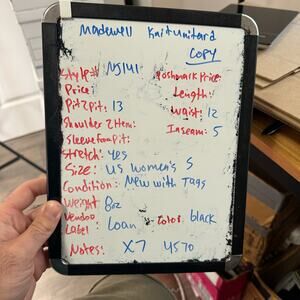 Madewell Knit unitard
COPY
Style# N5141 Poshmark Price:
Price: Length:
Pit 2 Pit: 13 Waist: 12
Shoulder 2 Hem: Inseam: 5
Sleeve From Pit:
Stretch: yes
Size: US Women's S
Condition: New with Tags
Weight 8oz
Vendoo Label Loan Color: black
Notes: X7 4570